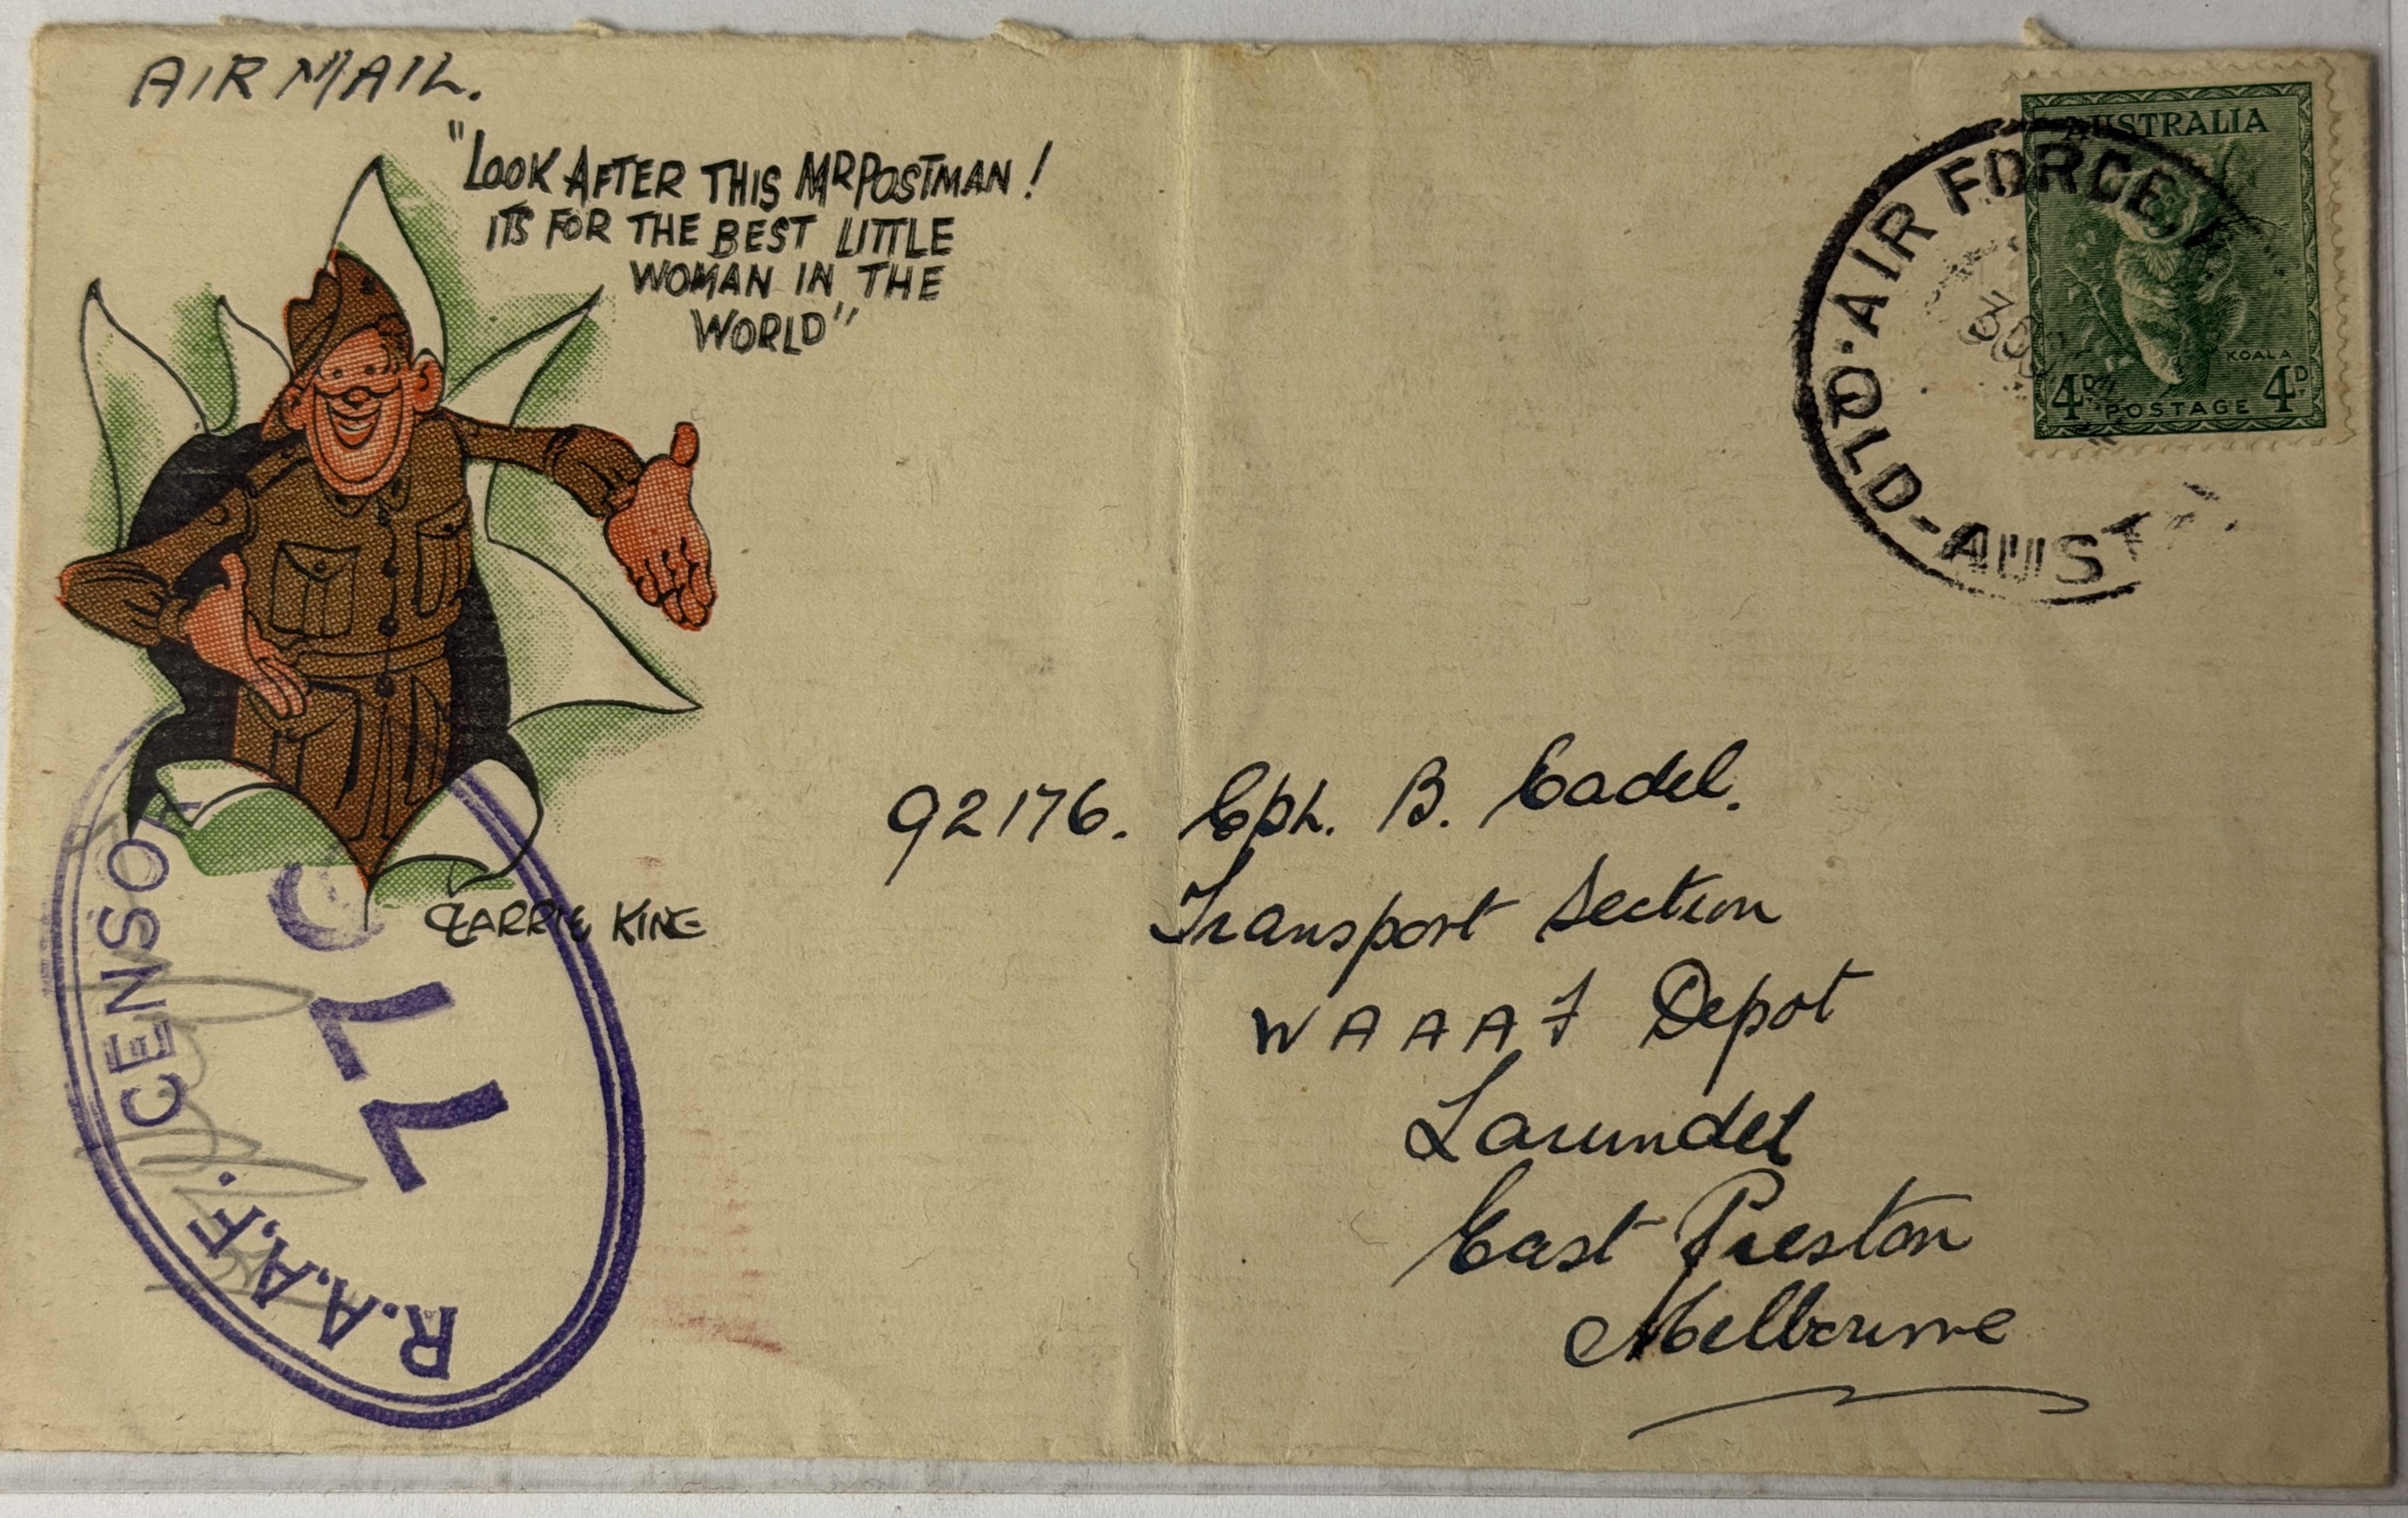 AIR MAIL.
"LOOK AFTER THIS MR POSTMAN!
ITS FOR THE BEST LITTLE
WOMAN IN THE
WORLD"
AUSTRALIA
KOALA
4D POSTAGE 4D
AIR FORCE
QLD-AUST
92176. Cpl. B. Cadel.
Transport Section
WAAAF Depot
Larundel
East Preston
Melbourne
KING
R.A.A.F. CENSOR